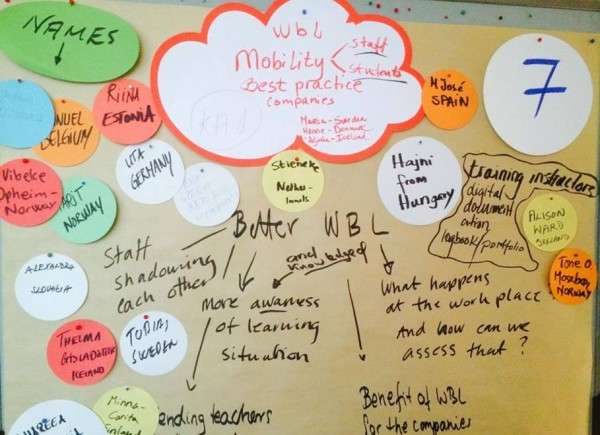 NAMES
WbL
Mobility
staff
students
Best practice
companies
KA1
Maria - Sweden
7
M José
SPAIN
RIINA
ESTONIA
NUEL
BELGIUM
UTA
GERMANY
Vibeke
Opheim-
Norway
NORWAY
Stieneke
Nether-
lands
Hajni
from
Hungary
training instructors
digital
document
ation
logbook/portfolio
ALISON
WARD
Tone O
Mosebøy
NORWAY
ALEXANDRA
SLOVAKIA
THELMA
ICELAND
TOBIAS
SWEDEN
Minna-
Carita
Finland
Better WBL
Staff
shadowing
each other
and
knowledge of
more awarness
of learning
situation
what happens
at the work place
And how can we
assess that?
nding teachers
Benefit of WBL
for the companies